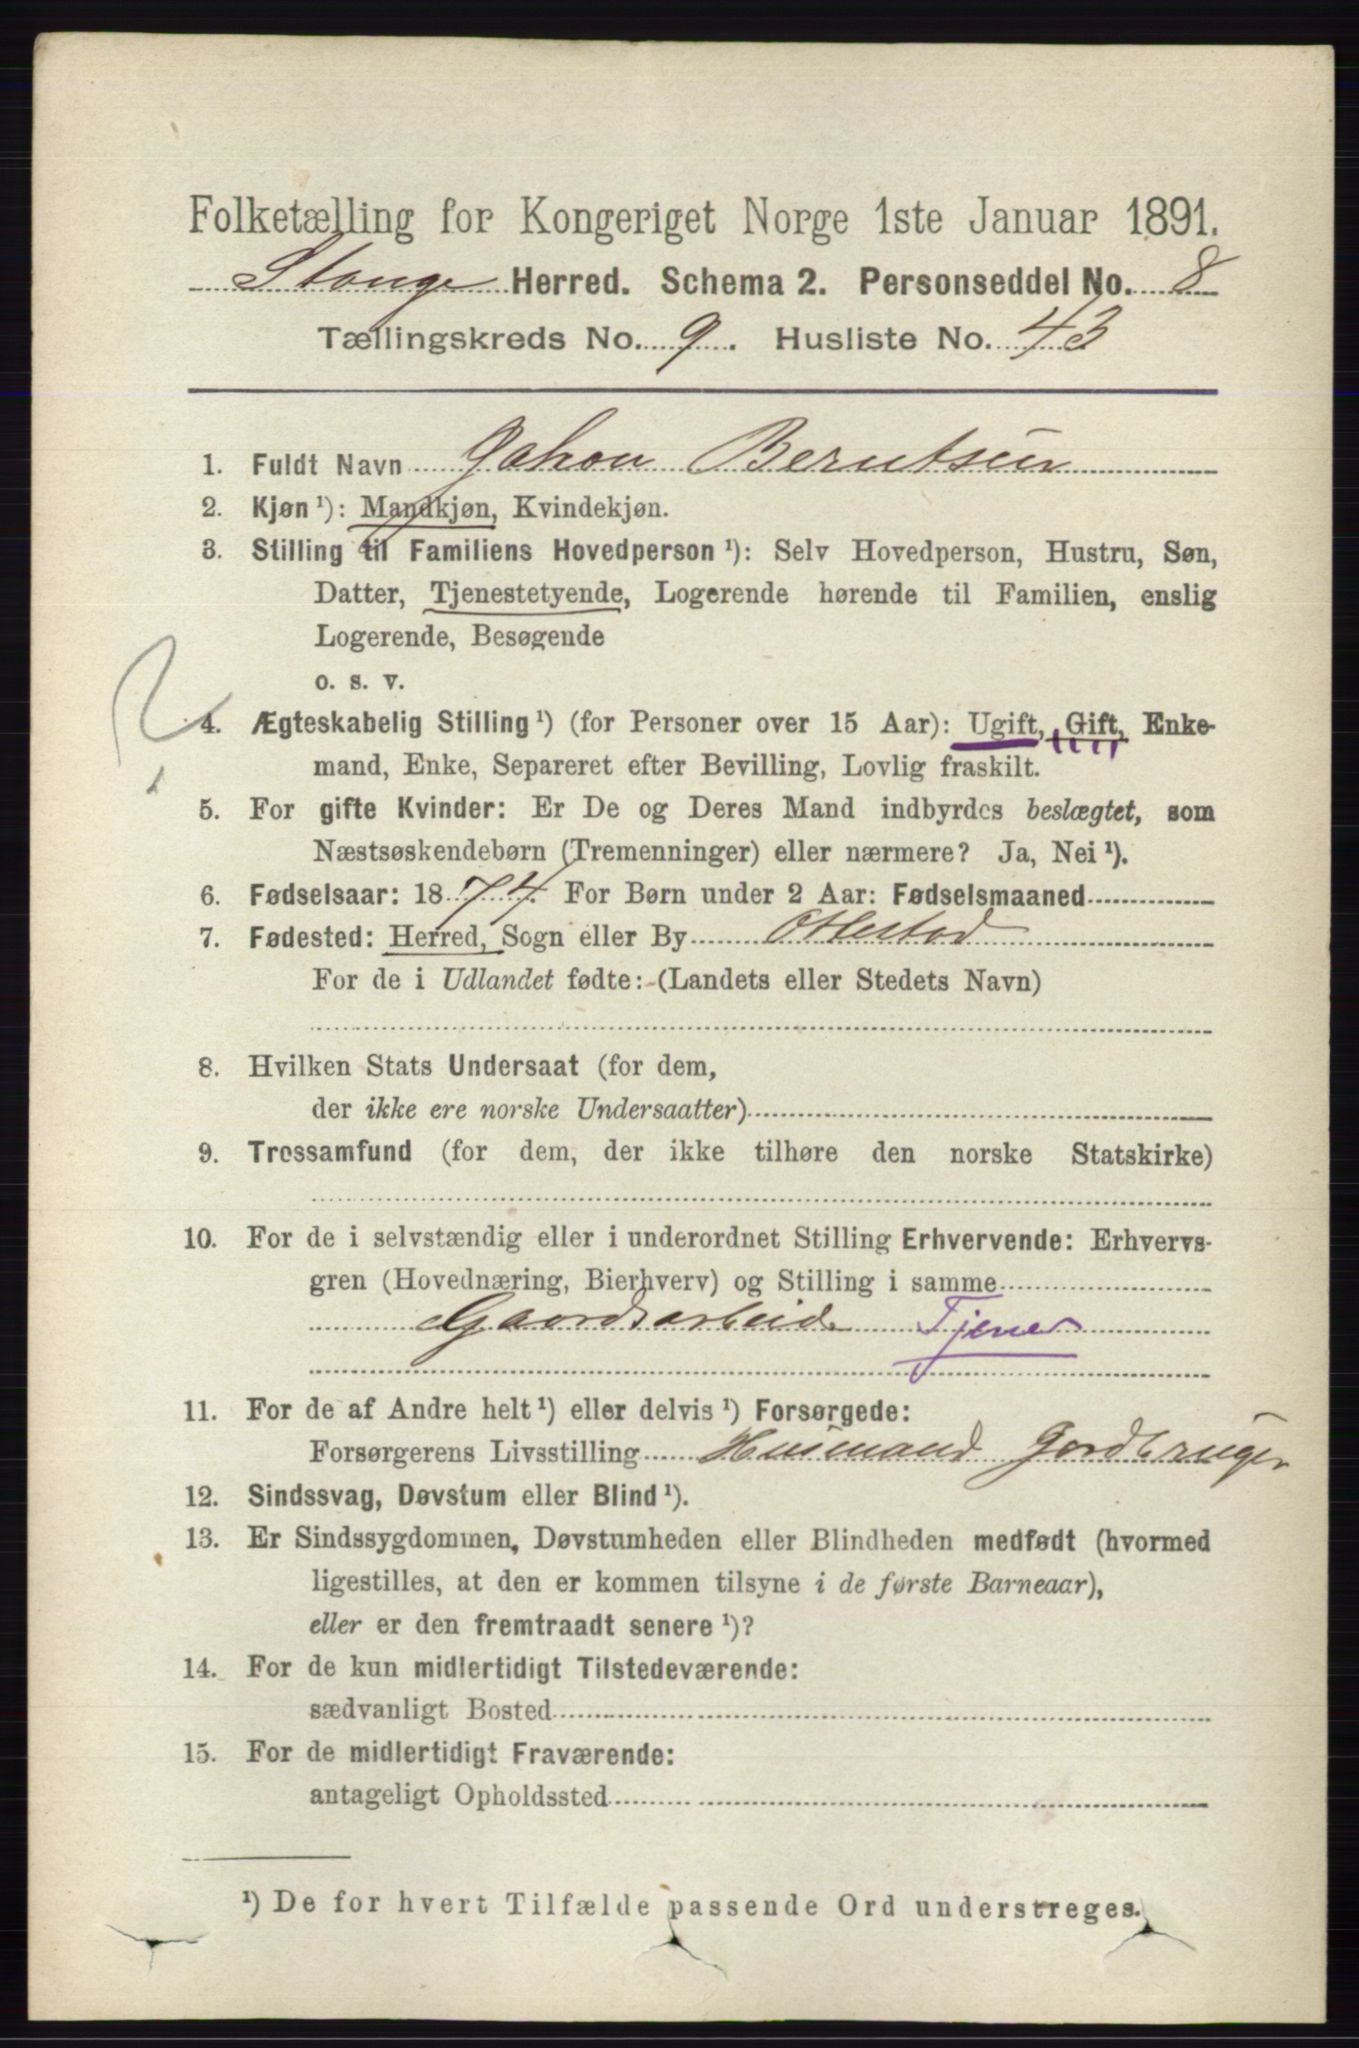 Folketælling for Kongeriget Norge 1ste Januar 1891.
Stange Herred. Schema 2. Personseddel No. 8
Tællingskreds No. 9. Husliste No. 43
1. Fuldt Navn Johan Berntsen
2. Kjøn ¹): Mandkjøn, Kvindekjøn.
3. Stilling til Familiens Hovedperson ¹): Selv Hovedperson, Hustru, Søn,
Datter, Tjenestetyende, Logerende hørende til Familien, enslig
Logerende, Besøgende
o. s. v.
4. Ægteskabelig Stilling ¹) (for Personer over 15 Aar): Ugift, Gift, Enke-
mand, Enke, Separeret efter Bevilling, Lovlig fraskilt.
5. For gifte Kvinder: Er De og Deres Mand indbyrdes beslægtet, som
Næstsøskendebørn (Tremenninger) eller nærmere? Ja, Nei ¹).
6. Fødselsaar: 1874. For Børn under 2 Aar: Fødselsmaaned
7. Fødested: Herred, Sogn eller By Ottestad
For de i Udlandet fødte: (Landets eller Stedets Navn)
8. Hvilken Stats Undersaat (for dem,
der ikke ere norske Undersaatter)
9. Trossamfund (for dem, der ikke tilhøre den norske Statskirke)
10. For de i selvstændig eller i underordnet Stilling Erhvervende: Erhvervs-
gren (Hovednæring, Bierhverv) og Stilling i samme
Gaardsarbeide Tjener
11. For de af Andre helt ¹) eller delvis ¹) Forsørgede:
Forsørgerens Livsstilling Husmand Jordbruger
12. Sindssvag, Døvstum eller Blind ¹).
13. Er Sindssygdommen, Døvstumheden eller Blindheden medfødt (hvormed
ligestilles, at den er kommen tilsyne i de første Barneaar),
eller er den fremtraadt senere ¹)?
14. For de kun midlertidigt Tilstedeværende:
sædvanligt Bosted
15. For de midlertidigt Fraværende:
antageligt Opholdssted
¹) De for hvert Tilfælde passende Ord understreges.